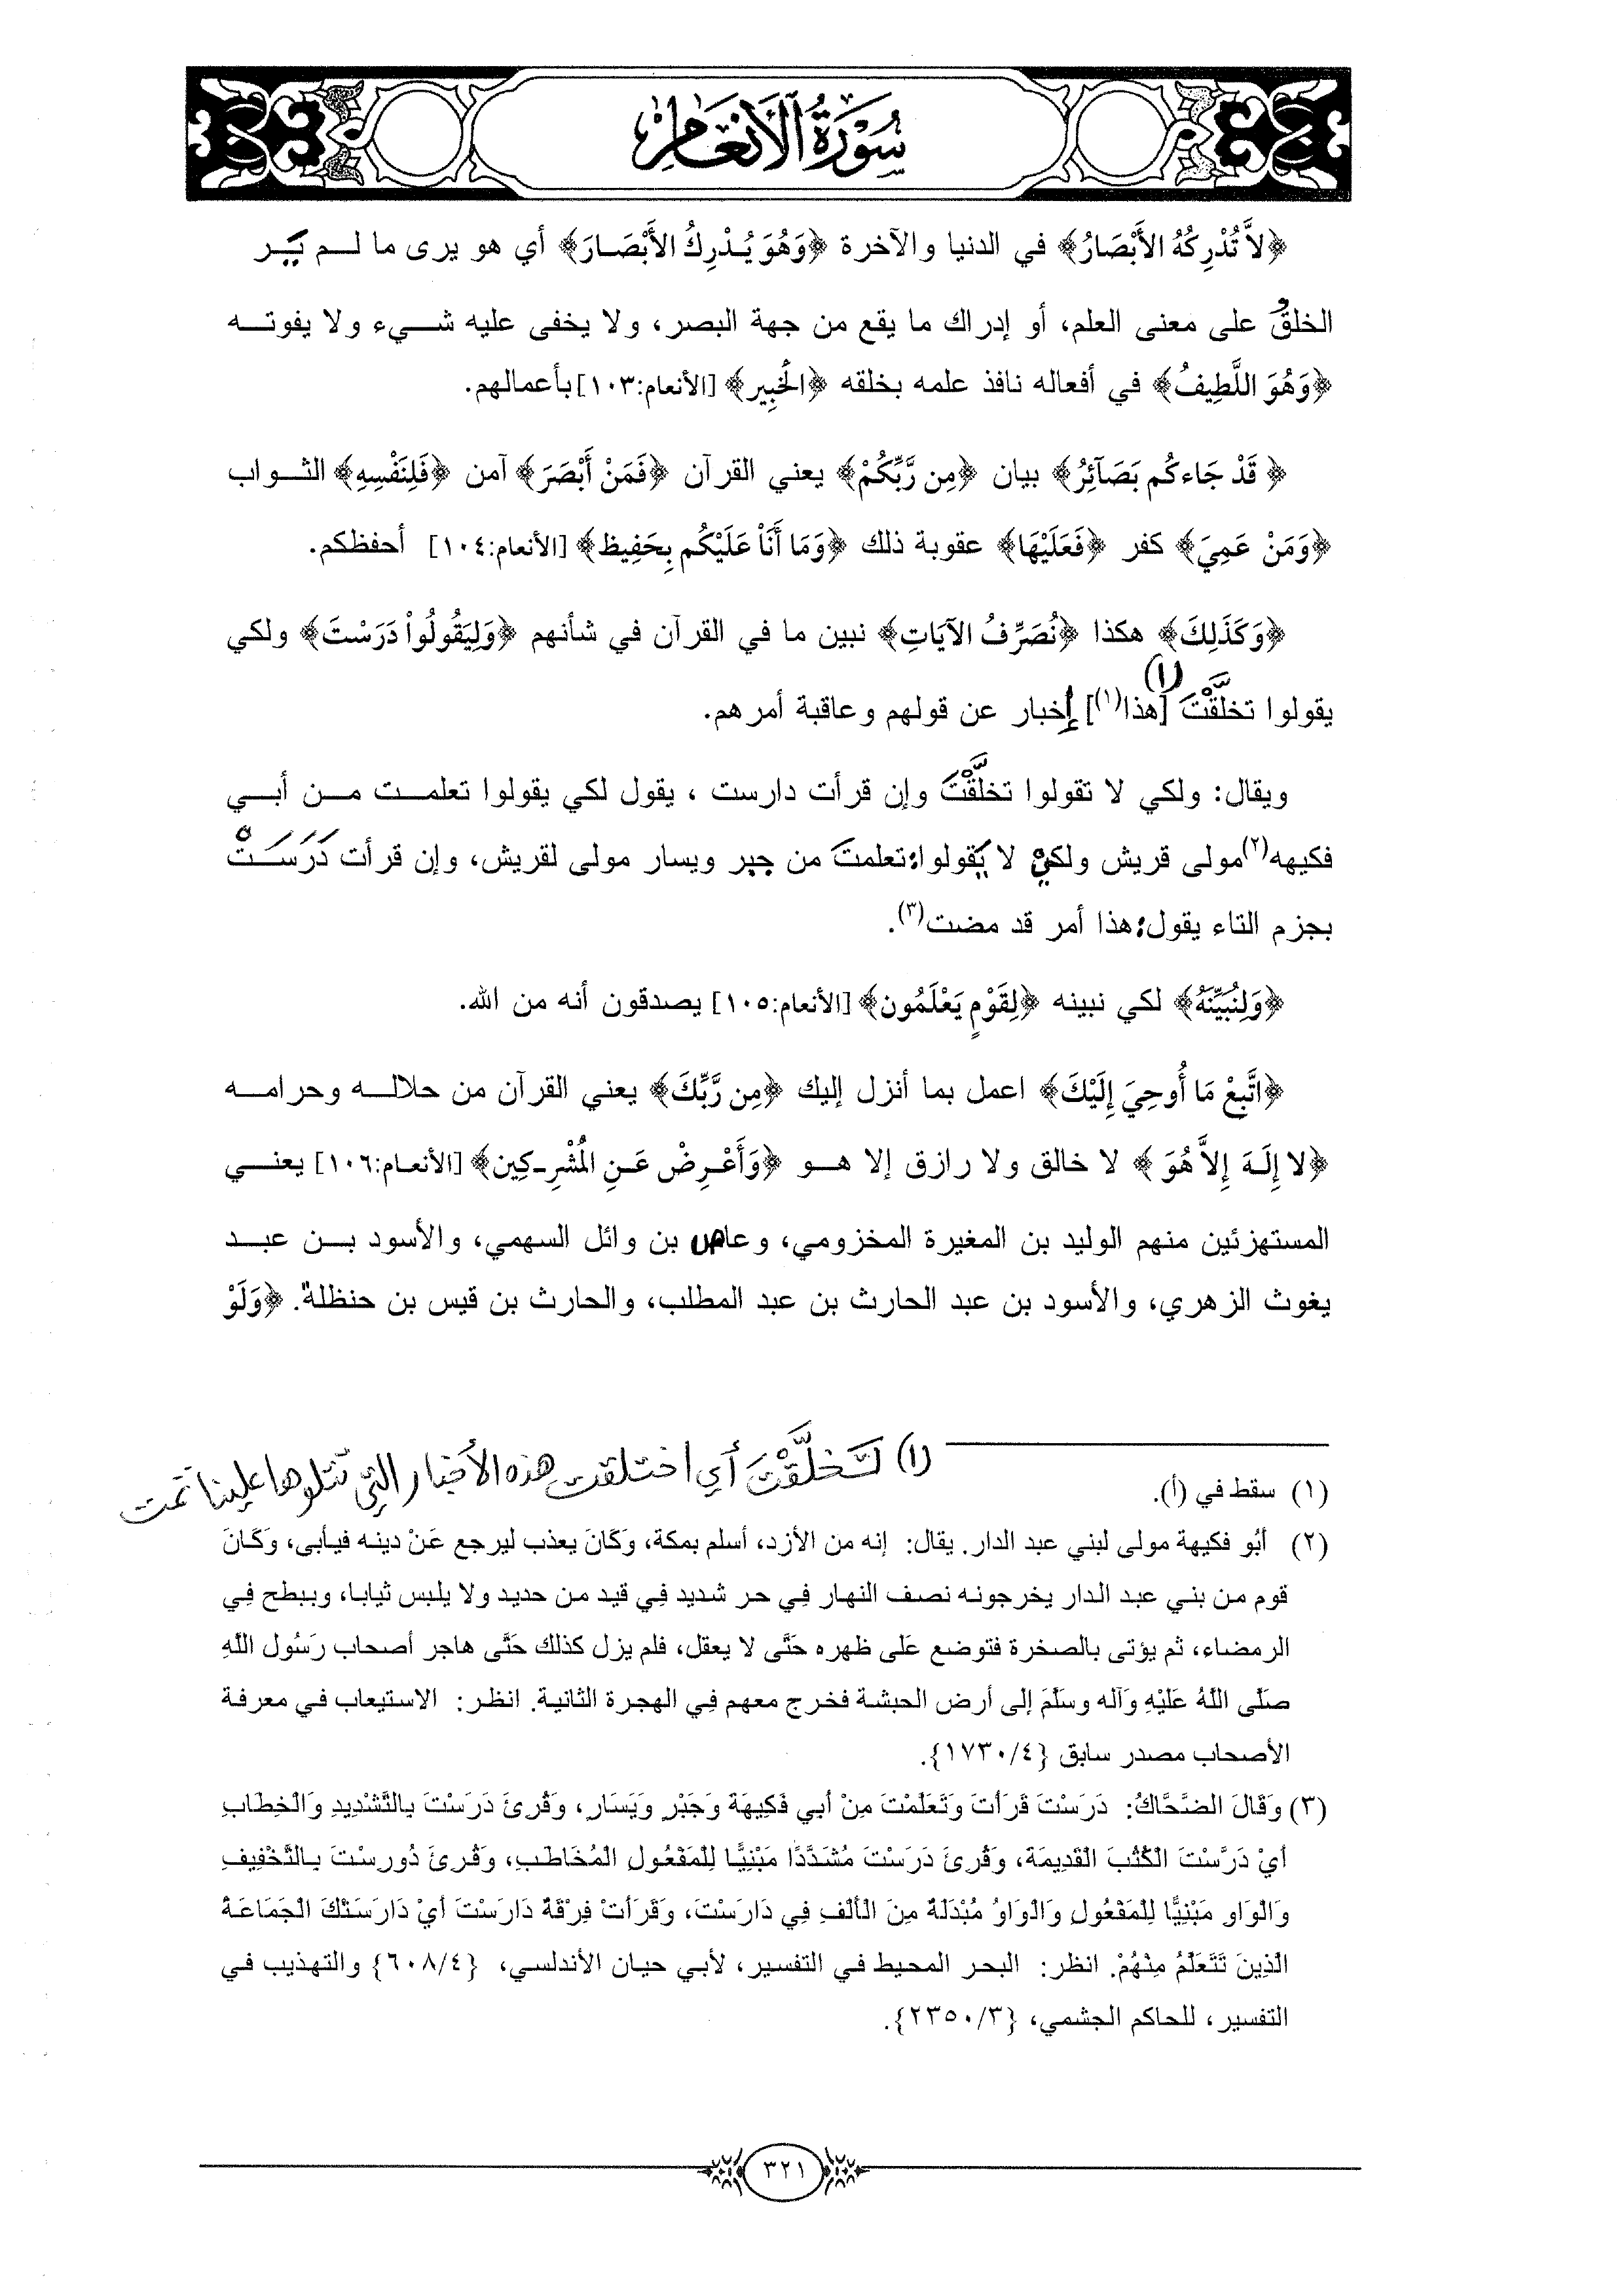 سُورَةُ الْأَنْعَامِ
﴿لاَّ تُدْرِكُهُ الأَبْصَارُ﴾ في الدنيا والآخرة ﴿وَهُوَ يُدْرِكُ الأَبْصَارَ﴾ أي هو يرى ما لم ير
الخلقُ على معنى العلم، أو إدراك ما يقع من جهة البصر، ولا يخفى عليه شيء ولا يفوته
﴿وَهُوَ اللَّطِيفُ﴾ في أفعاله نافذ علمه بخلقه ﴿الْخَبِير﴾ [الأنعام:١٠٣] بأعمالهم.
﴿قَدْ جَاءكُم بَصَآئِرُ﴾ بيان ﴿مِن رَّبِّكُمْ﴾ يعني القرآن ﴿فَمَنْ أَبْصَرَ﴾ آمن ﴿فَلِنَفْسِهِ﴾ الثواب
﴿وَمَنْ عَمِيَ﴾ كفر ﴿فَعَلَيْهَا﴾ عقوبة ذلك ﴿وَمَا أَنَاْ عَلَيْكُم بِحَفِيظ﴾ [الأنعام:١٠٤] أحفظكم.
﴿وَكَذَلِكَ﴾ هكذا ﴿نُصَرِّفُ الآيَاتِ﴾ نبين ما في القرآن في شأنهم ﴿وَلِيَقُولُواْ دَرَسْتَ﴾ ولكي
يقولوا تخلَّقْتَ (١) [هذا(١)] إخبار عن قولهم وعاقبة أمرهم.
ويقال: ولكي لا تقولوا تخلَّقْتَ وإن قرأت دارست ، يقول لكي يقولوا تعلمت من أبي
فكيهه(٢)مولى قريش ولكي لا يقولوا: تعلمتَ من جبر ويسار مولى لقريش، وإن قرأت دَرَسَتْ
بجزم التاء يقول: هذا أمر قد مضت(٣).
﴿وَلِنُبَيِّنَهُ﴾ لكي نبينه ﴿لِقَوْمٍ يَعْلَمُون﴾ [الأنعام:١٠٥] يصدقون أنه من الله.
﴿اتَّبِعْ مَا أُوحِيَ إِلَيْكَ﴾ اعمل بما أنزل إليك ﴿مِن رَّبِّكَ﴾ يعني القرآن من حلاله وحرامه
﴿لا إِلَهَ إِلاَّ هُوَ﴾ لا خالق ولا رازق إلا هو ﴿وَأَعْرِضْ عَنِ الْمُشْرِكِين﴾ [الأنعام:١٠٦] يعني
المستهزئين منهم الوليد بن المغيرة المخزومي، وعاص بن وائل السهمي، والأسود بن عبد
يغوث الزهري، والأسود بن عبد الحارث بن عبد المطلب، والحارث بن قيس بن حنظلة. ﴿وَلَوْ
(١) تَخلَّقْتَ أي اختلقت هذه الأخبار التي تتلوها علينا تمت
(١) سقط في (أ).
(٢) أبُو فكيهة مولى لبني عبد الدار. يقال: إنه من الأزد، أسلم بمكة، وَكَانَ يعذب ليرجع عَنْ دينه فيأبى، وَكَانَ
قوم من بني عبد الدار يخرجونه نصف النهار فِي حر شديد فِي قيد من حديد ولا يلبس ثيابا، ويبطح فِي
الرمضاء، ثم يؤتى بالصخرة فتوضع عَلى ظهره حَتَّى لا يعقل، فلم يزل كذلك حَتَّى هاجر أصحاب رَسُول اللَّهِ
صَلَّى اللَّهُ عَلَيْهِ وَآله وسَلَّمَ إلى أرض الحبشة فخرج معهم فِي الهجرة الثانية. انظر: الاستيعاب في معرفة
الأصحاب مصدر سابق {١٧٣٠/٤}.
(٣) وَقَالَ الضَّحَّاكُ: دَرَسْتَ قَرَأْتَ وَتَعَلَّمْتَ مِنْ أبي فَكِيهَة وَجَبْرٍ وَيَسَارٍ، وَقُرِئَ دَرَسْتَ بِالتَّشْدِيدِ وَالْخِطَابِ
أيْ دَرَّسْتَ الْكُتُبَ الْقَدِيمَة، وَقُرِئَ دَرَسْتَ مُشَدَّدًا مَبْنِيًّا لِلْمَفْعُولِ الْمُخَاطَبِ، وَقُرِئَ دُورِسْتَ بِالتَّخْفِيفِ
وَالْوَاوِ مَبْنِيًّا لِلْمَفْعُولِ وَالْوَاوُ مُبْدَلَةٌ مِنَ الْألِفِ فِي دَارَسْتَ، وَقَرَأتْ فِرْقَةٌ دَارَسْتَ أيْ دَارَسَتْكَ الْجَمَاعَةُ
الَّذِينَ تَتَعَلَّمُ مِنْهُمْ. انظر: البحر المحيط في التفسير، لأبي حيان الأندلسي، {٦٠٨/٤} والتهذيب في
التفسير، للحاكم الجشمي، {٢٣٥٠/٣}.
٣٢١